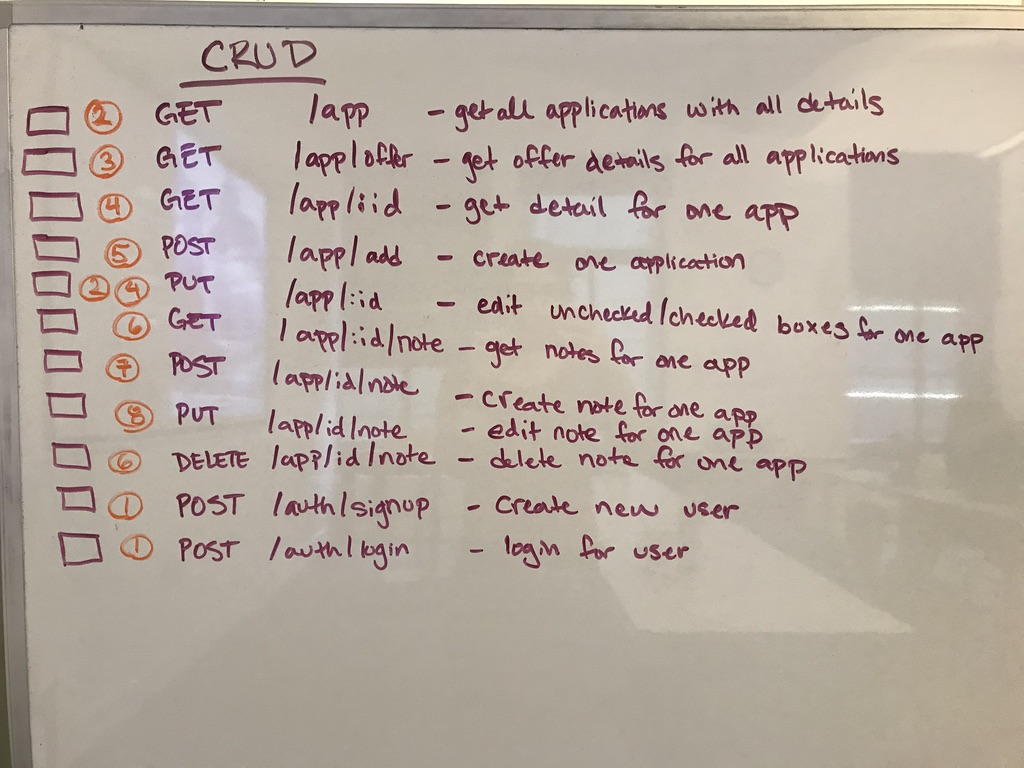 CRUD
2 GET /app - get all applications with all details
3 GET /app/offer - get offer details for all applications
4 GET /app/:id - get detail for one app
5 POST /app/add - create one application
2 4 PUT /app/:id - edit unchecked/checked boxes for one app
6 GET /app/:id/note - get notes for one app
7 POST /app/id/note - create note for one app
8 PUT /app/id/note - edit note for one app
6 DELETE /app/id/note - delete note for one app
1 POST /auth/signup - create new user
1 POST /auth/login - login for user